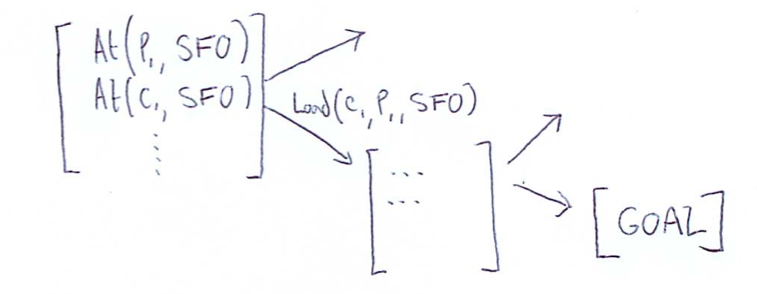 At(P₁, SFO)
At(C₁, SFO)
Load(C₁, P₁, SFO)
...
...
[GOAL]